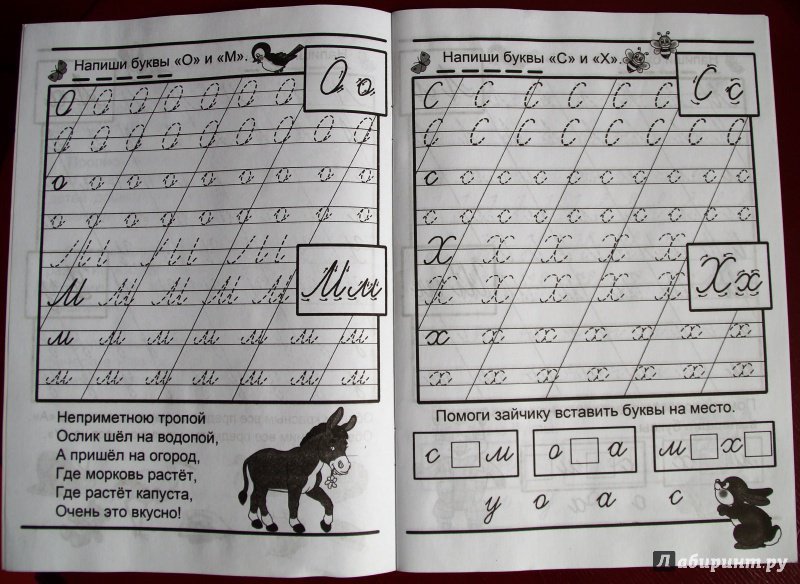 Напиши буквы «О» и «М».
О о
О О О О О О О О
О О О О О О О О
о о о о о о о о
о о о о о о о о
М м
М М М
М М М М М
м м м м м м м
м м м м м м м
Неприметною тропой
Ослик шёл на водопой,
А пришёл на огород,
Где морковь растёт,
Где растёт капуста,
Очень это вкусно!
Напиши буквы «С» и «Х».
С с
С С С С С С
С С С С С С С С
с с с с с с с с с
с с с с с с с с с
Х х
Х Х Х Х Х
Х Х Х Х Х
х х х х х х х
х х х х х х х
Помоги зайчику вставить буквы на место.
с м о а м х
у о а с
Лабиринт.ру